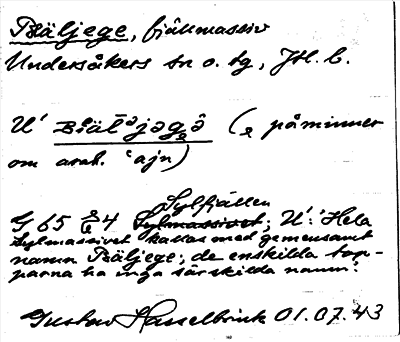 Bäljege, fjällmassiv
Undersåkers sn o. tg, Jtl. l.
U' (e påminner
om arab. ʿajn)
Sylfjällen
G 65 4 Sylmassivet; U': 'Hela
Sylmassivet kallas med gemensamt
namn Bäljege; de enskilda top-
parna ha inga särskilda namn.'
Gustav Hasselbrink 01.07.43